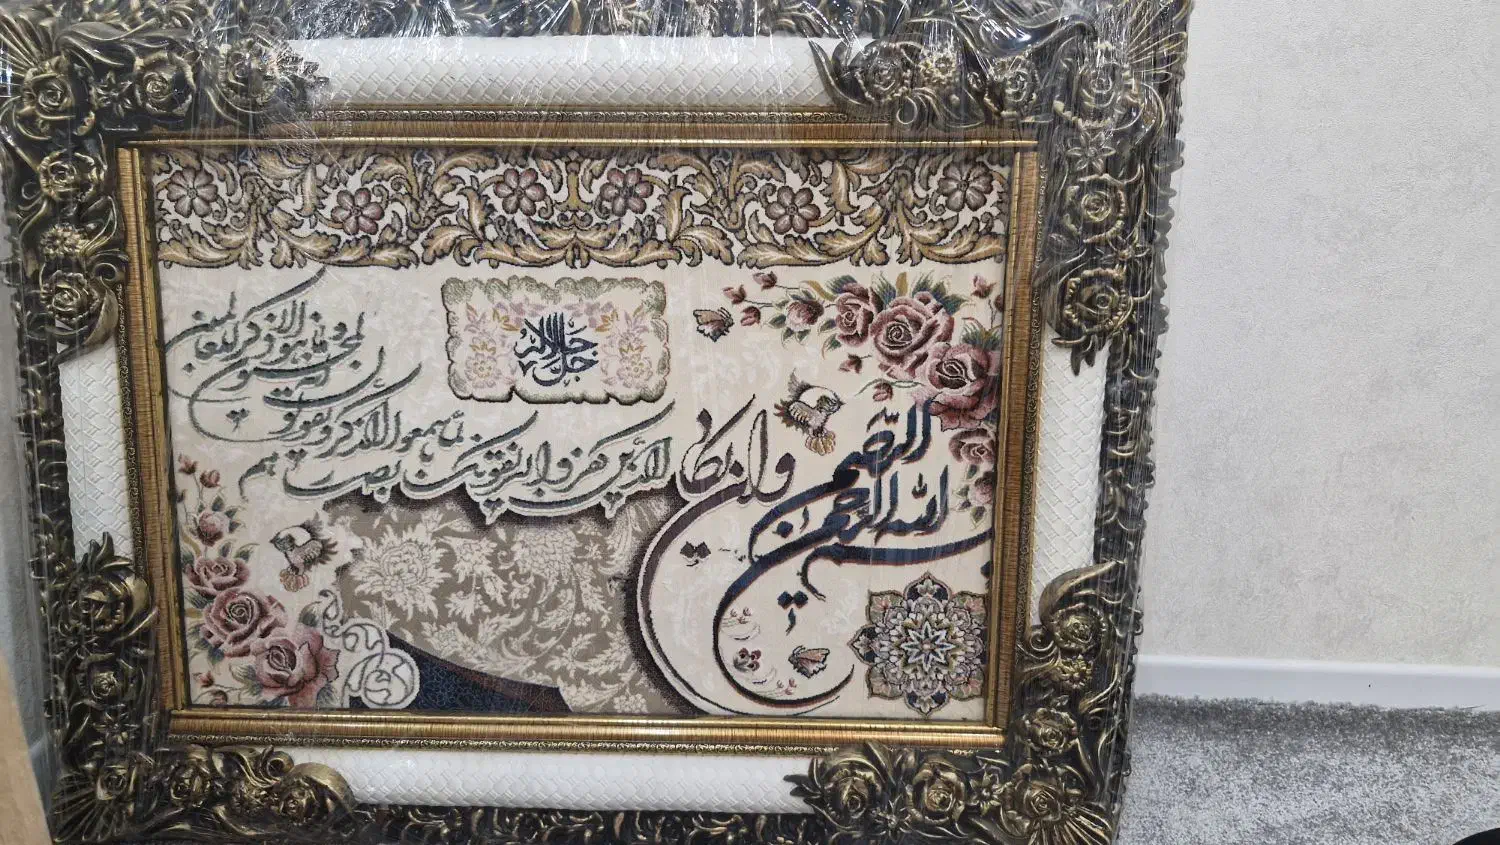 جل جلاله
بسم الله الرحمن الرحیم
وان یکاد
الذین کفروا لیزلقونک بابصارهم
لما سمعوا الذکر و یقولون انه
لمجنون و ما هو الا ذکر للعالمین